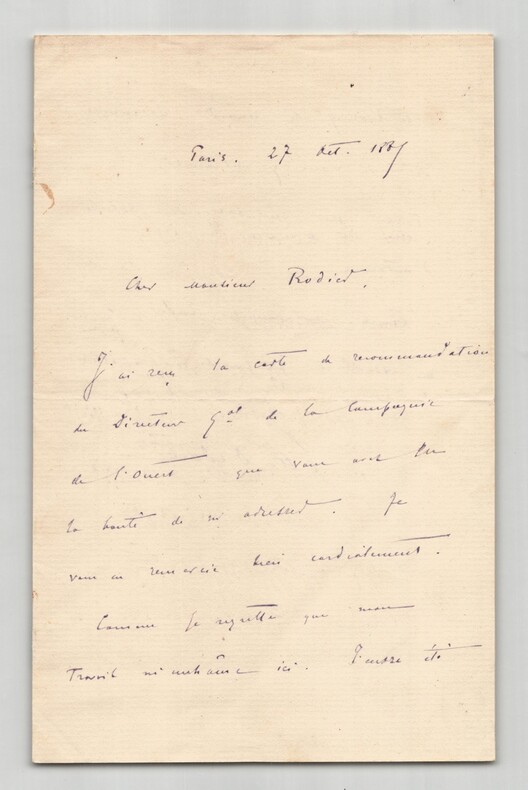 Paris. 27 Oct. 188
Cher Monsieur Rodier,
J'ai reçu la carte de recommandation
du Directeur Gal de la Compagnie
de l'Ouest que vous avez eu
la bonté de m'adresser. Je
vous en remercie bien cordialement.
Comme je regrette que mon
Travail m'enchaîne ici. J'eusse été